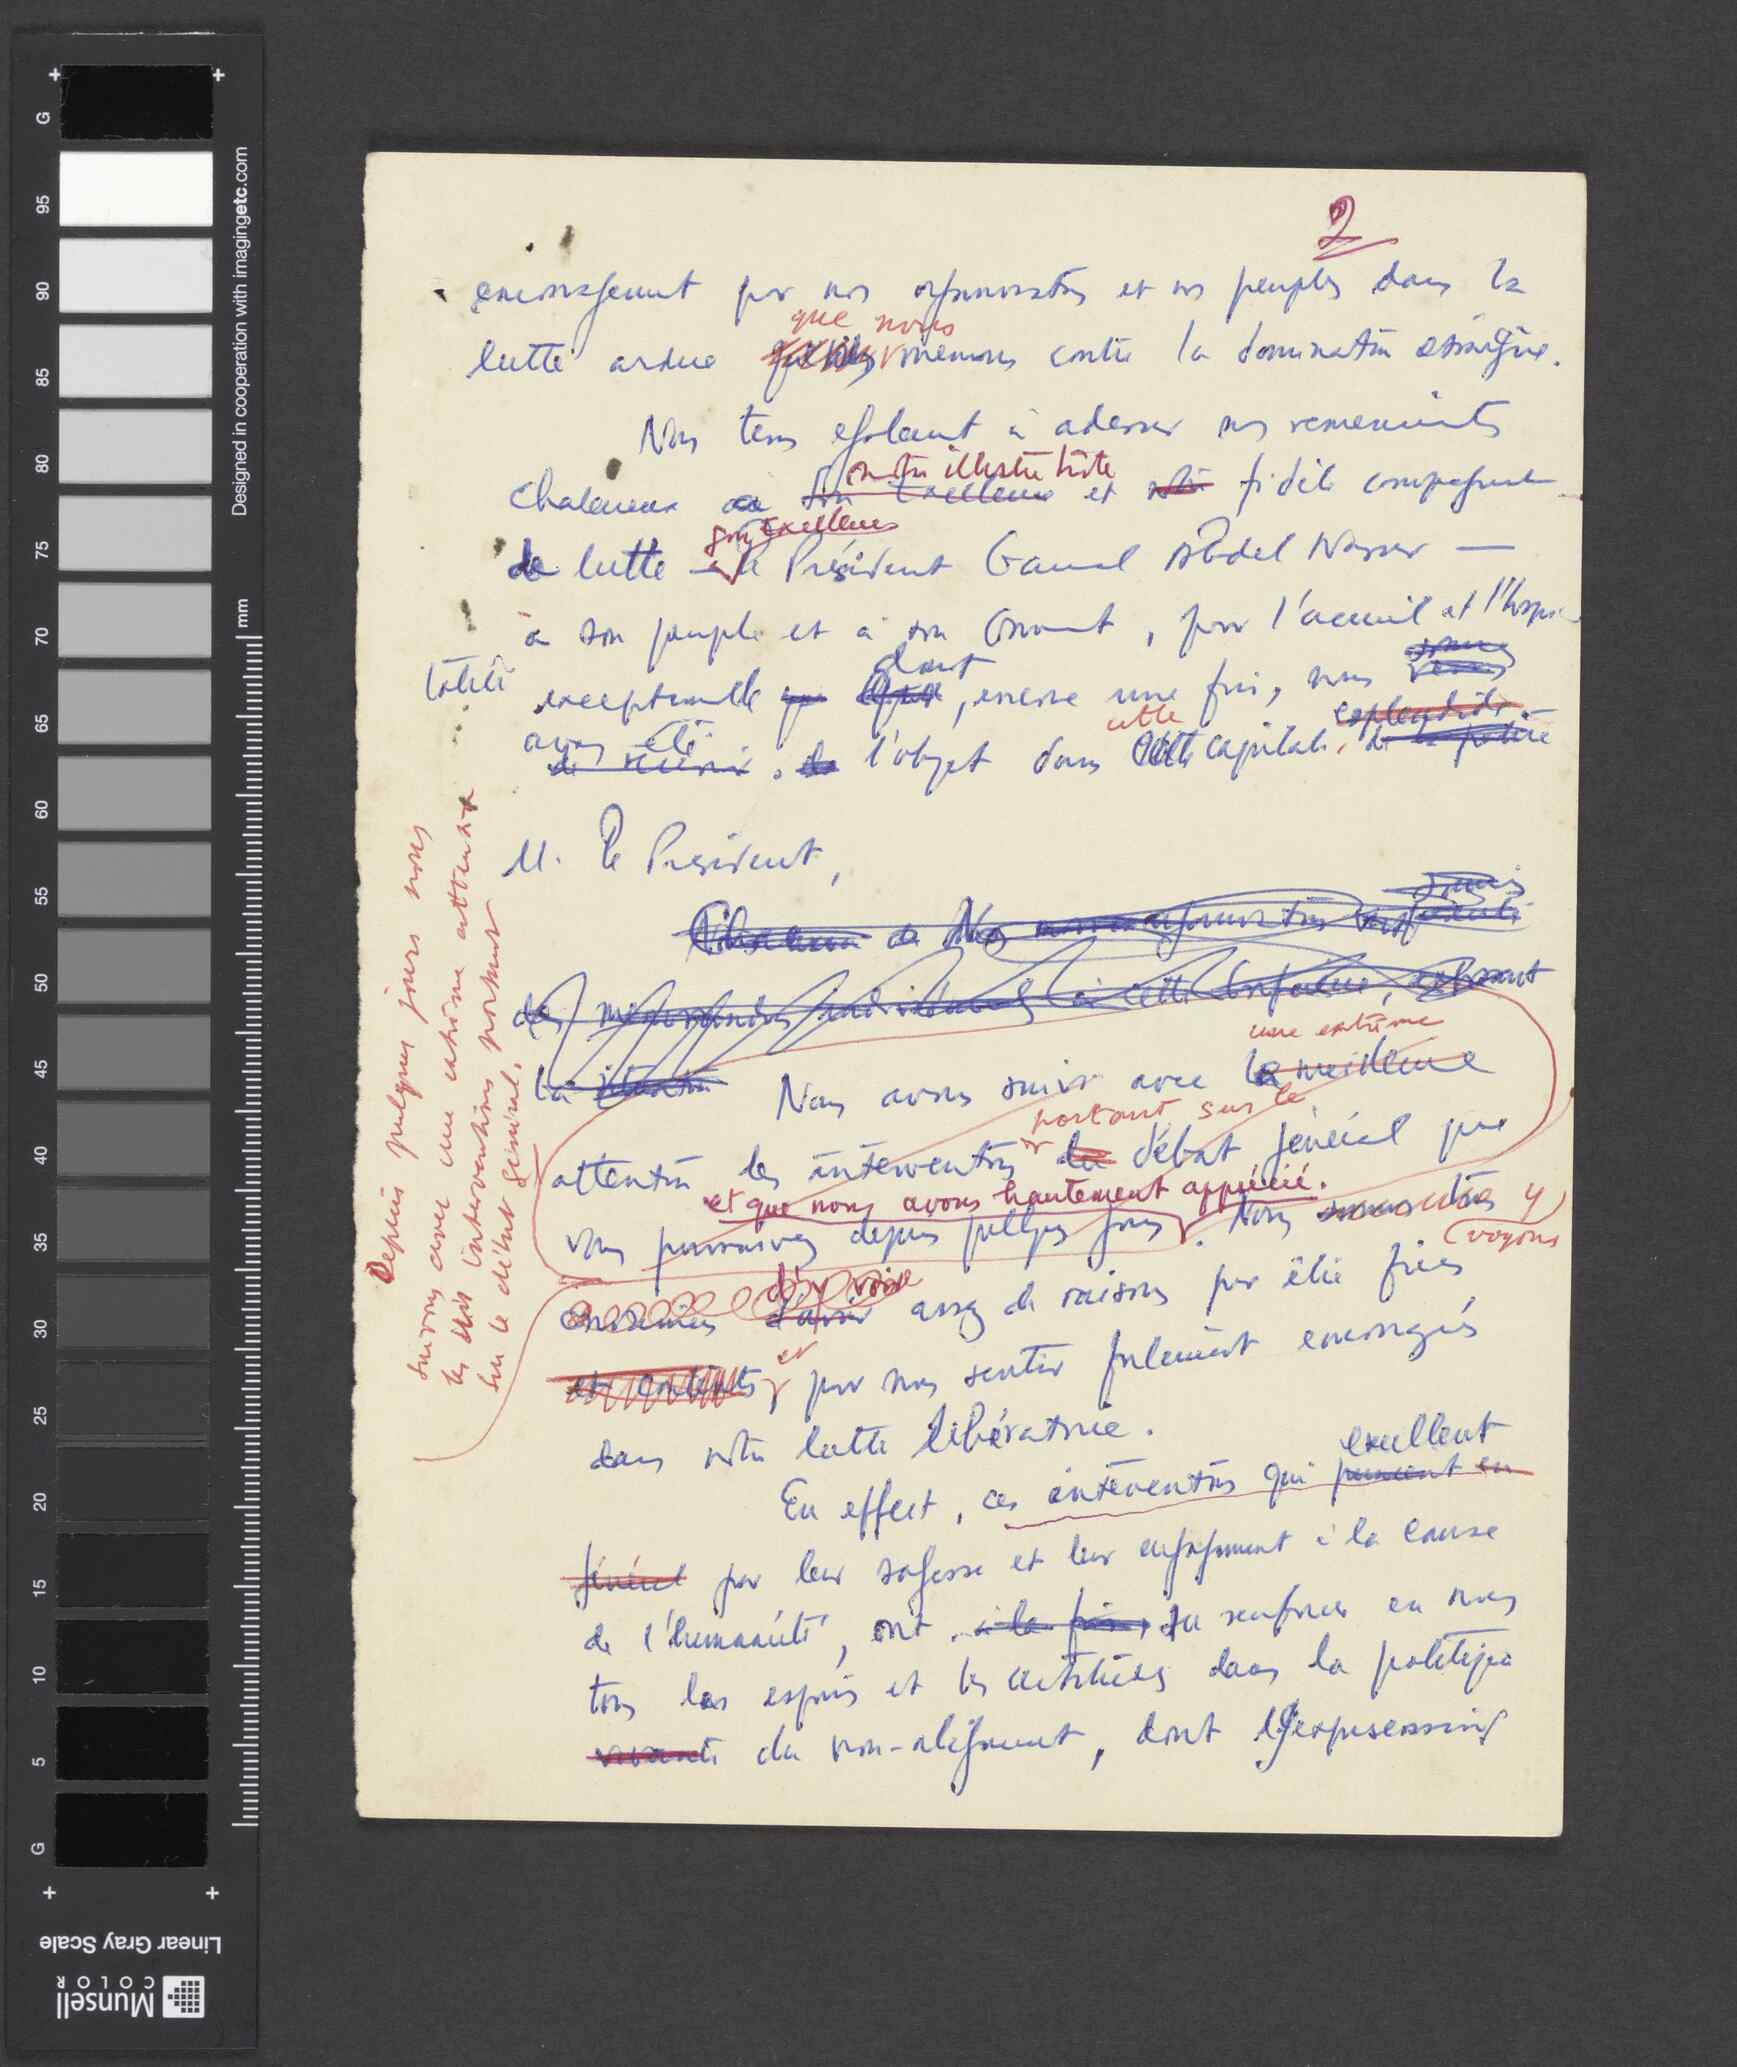 2
encouragement pour nos organisations et nos peuples dans la
que nous
lutte ardue menons contre la domination étrangère.
Nous tenons également à adresser nos remerciements
notre illustre hôte
chaleureux à Son Excellence et notre fidèle compagnon
Son Excellence
de lutte — le Président Gamal Abdel Nasser —
à son peuple et à son Gouvt, pour l'accueil et l'hospi-
talité exceptionnelle dont, encore une fois, nous
avons été l'objet dans cette capitale, esplendide.
de venir
cette
M. le Président,
des memorandus individuels à cette Conférence, exposant
la situation Nous avons suivi avec la meilleure
une extrême
portant sur le
attention les interventions du débat général que
et que nous avons hautement apprécié.
vous poursuivez depuis quelques jours. Nous
y
voyons
d'y voir
d'avoir assez de raisons pour être fiers
et contents, et pour nous sentir également encouragés
dans notre lutte libératrice.
excellent
En effect, ces interventions qui
général par leur sagesse et leur engagement à la cause
de l'humanité, ont à la fois su renforcer en nous
tous les espoirs et les certitudes dans la politique
vivante du non-alignement, dont
Depuis quelques jours nous
suivons avec une extrême attention
les interventions portant
sur le débat général.
G
95
90
85
80
75
70
65
60
55
50
45
40
35
30
25
20
15
10
5
G
Designed in cooperation with imagingetc.com
mm
Linear Gray Scale
Munsell
COLOR